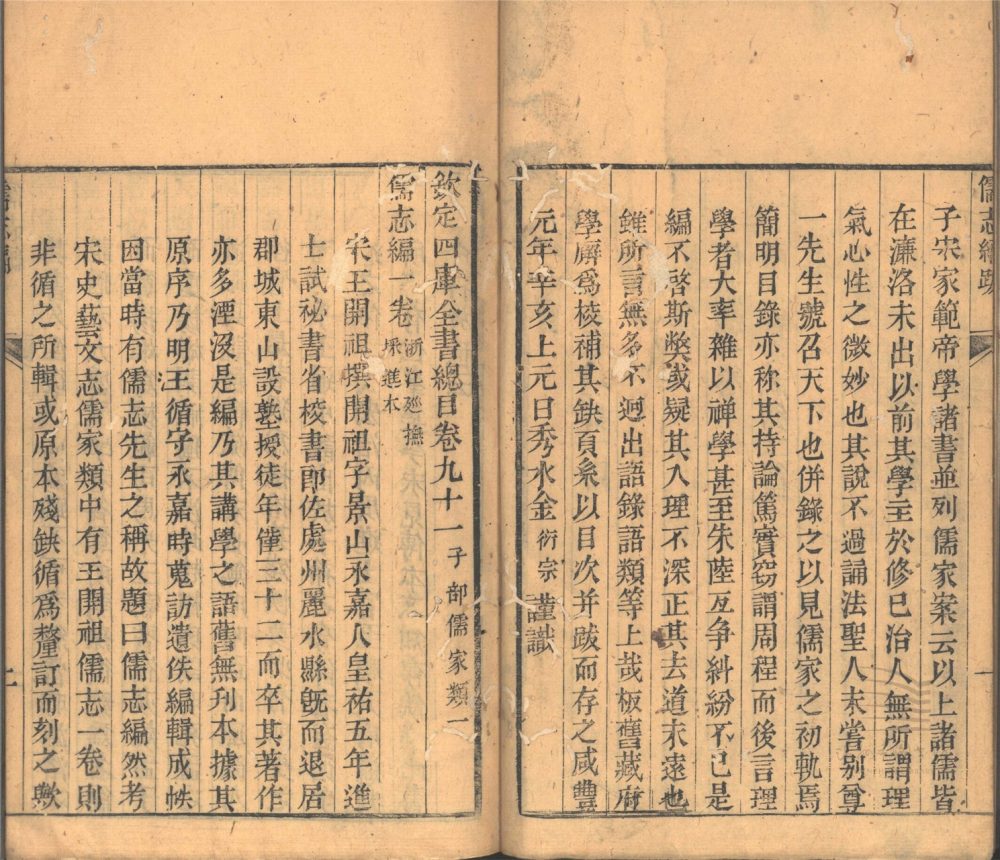 儒志編跋
子宋家範帝學諸書並列儒家案云以上諸儒皆
在濂洛未出以前其學至於修己治人無所謂理
氣心性之微妙也其說不過誦法聖人未嘗别尊
一先生號召天下也併錄之以見儒家之初軌焉
簡明目錄亦称其持論篤實窃謂周程而後言理
學者大率雜以禅學甚至朱陸互争糾紛不已是
編不啓斯獘或疑其入理不深正其去道未遠也
雖所言無多不迥出語錄語類等上哉板舊藏府
學廨爲校補其缺頁系以目次并跋而存之咸豐
元年辛亥上元日秀水金衍宗謹識
一
欽定四庫全書總目卷九十一子部儒家類一
儒志編一卷浙江廵撫採進本
宋王開祖撰開祖字景山永嘉人皇祐五年進
士試祕書省校書郎佐處州麗水縣旣而退居
郡城東山設塾授徒年僅三十二而卒其著作
亦多湮没是編乃其講學之語舊無刊本據其
原序乃明王循守永嘉時蒐訪遺佚編輯成帙
因當時有儒志先生之稱故題曰儒志編然考
宋史藝文志儒家類中有王開祖儒志一卷則
非循之所輯或原本殘缺循爲釐訂而刻之歟
儒志編